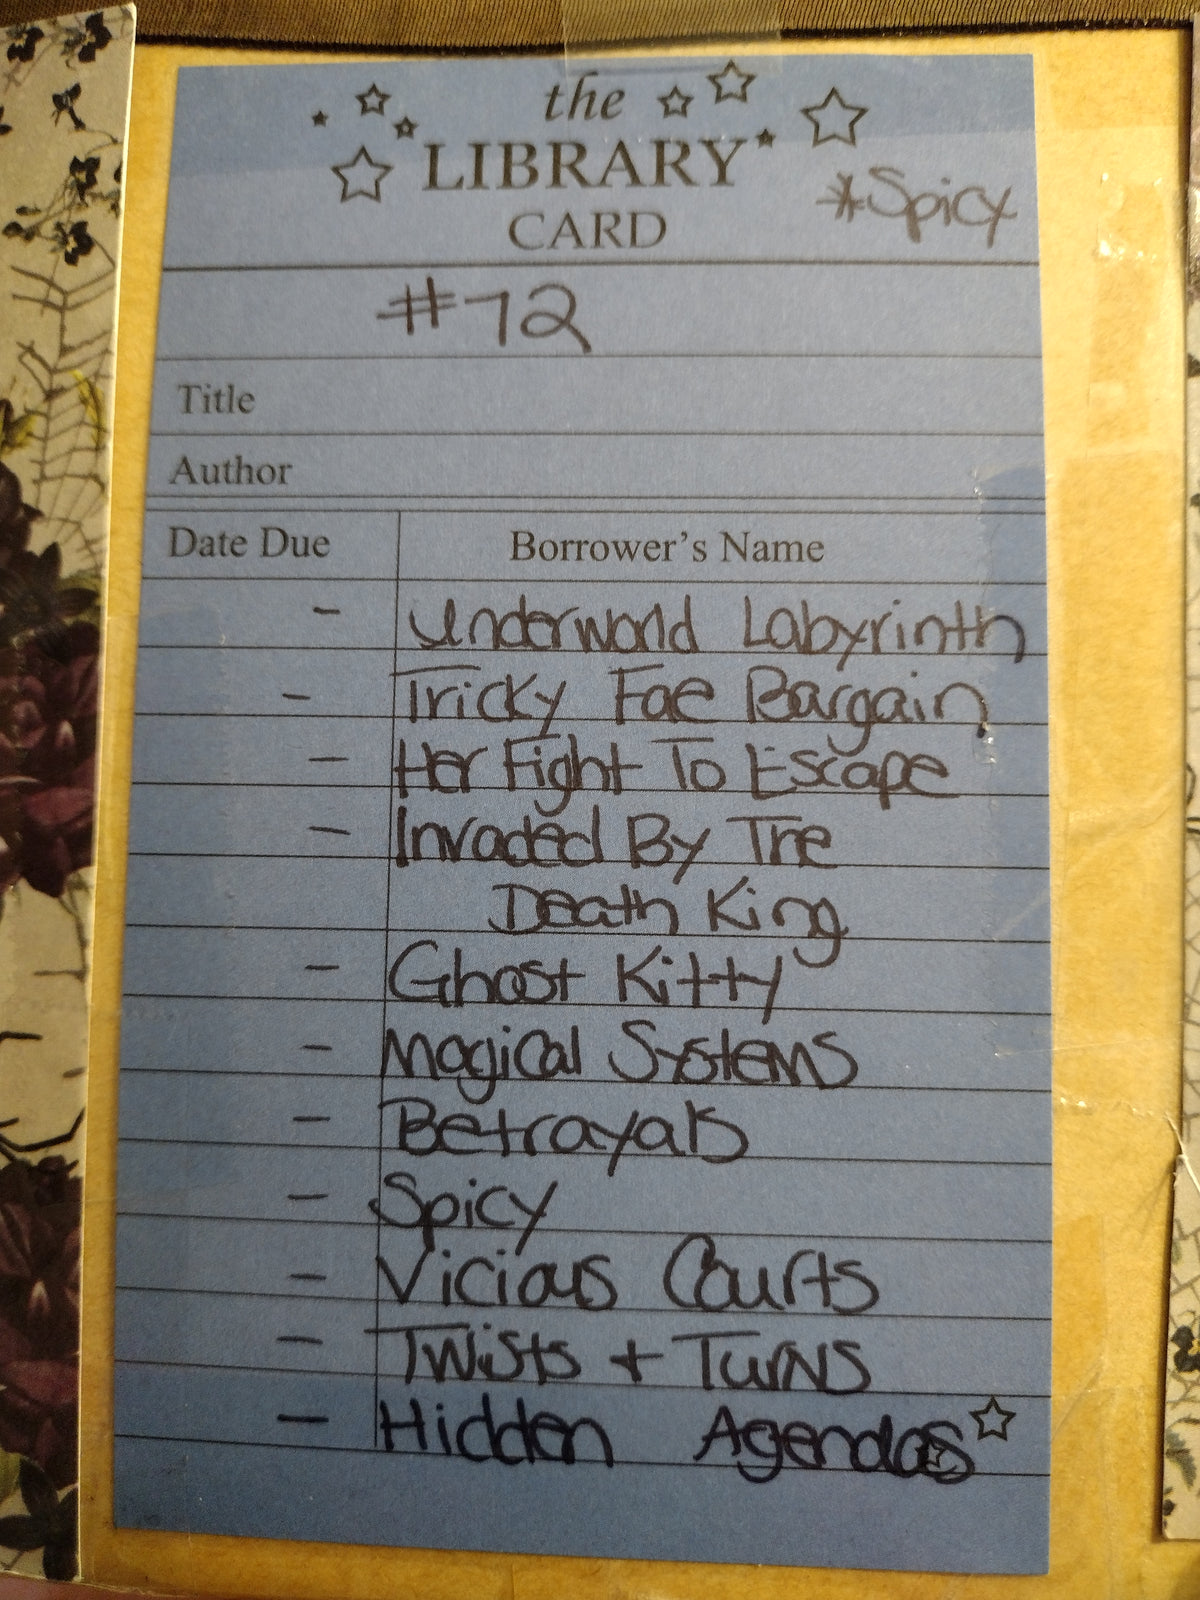 the
LIBRARY
CARD
*Spicy
#72
Title
Author
Date Due Borrower's Name
- Underworld Labyrinth
- Tricky Fae Bargain
- Her Fight To Escape
- Invaded By The
Death King
- Ghost Kitty
- Magical Systems
- Betrayals
- Spicy
- Vicious Courts
- Twists + Turns
- Hidden Agendas